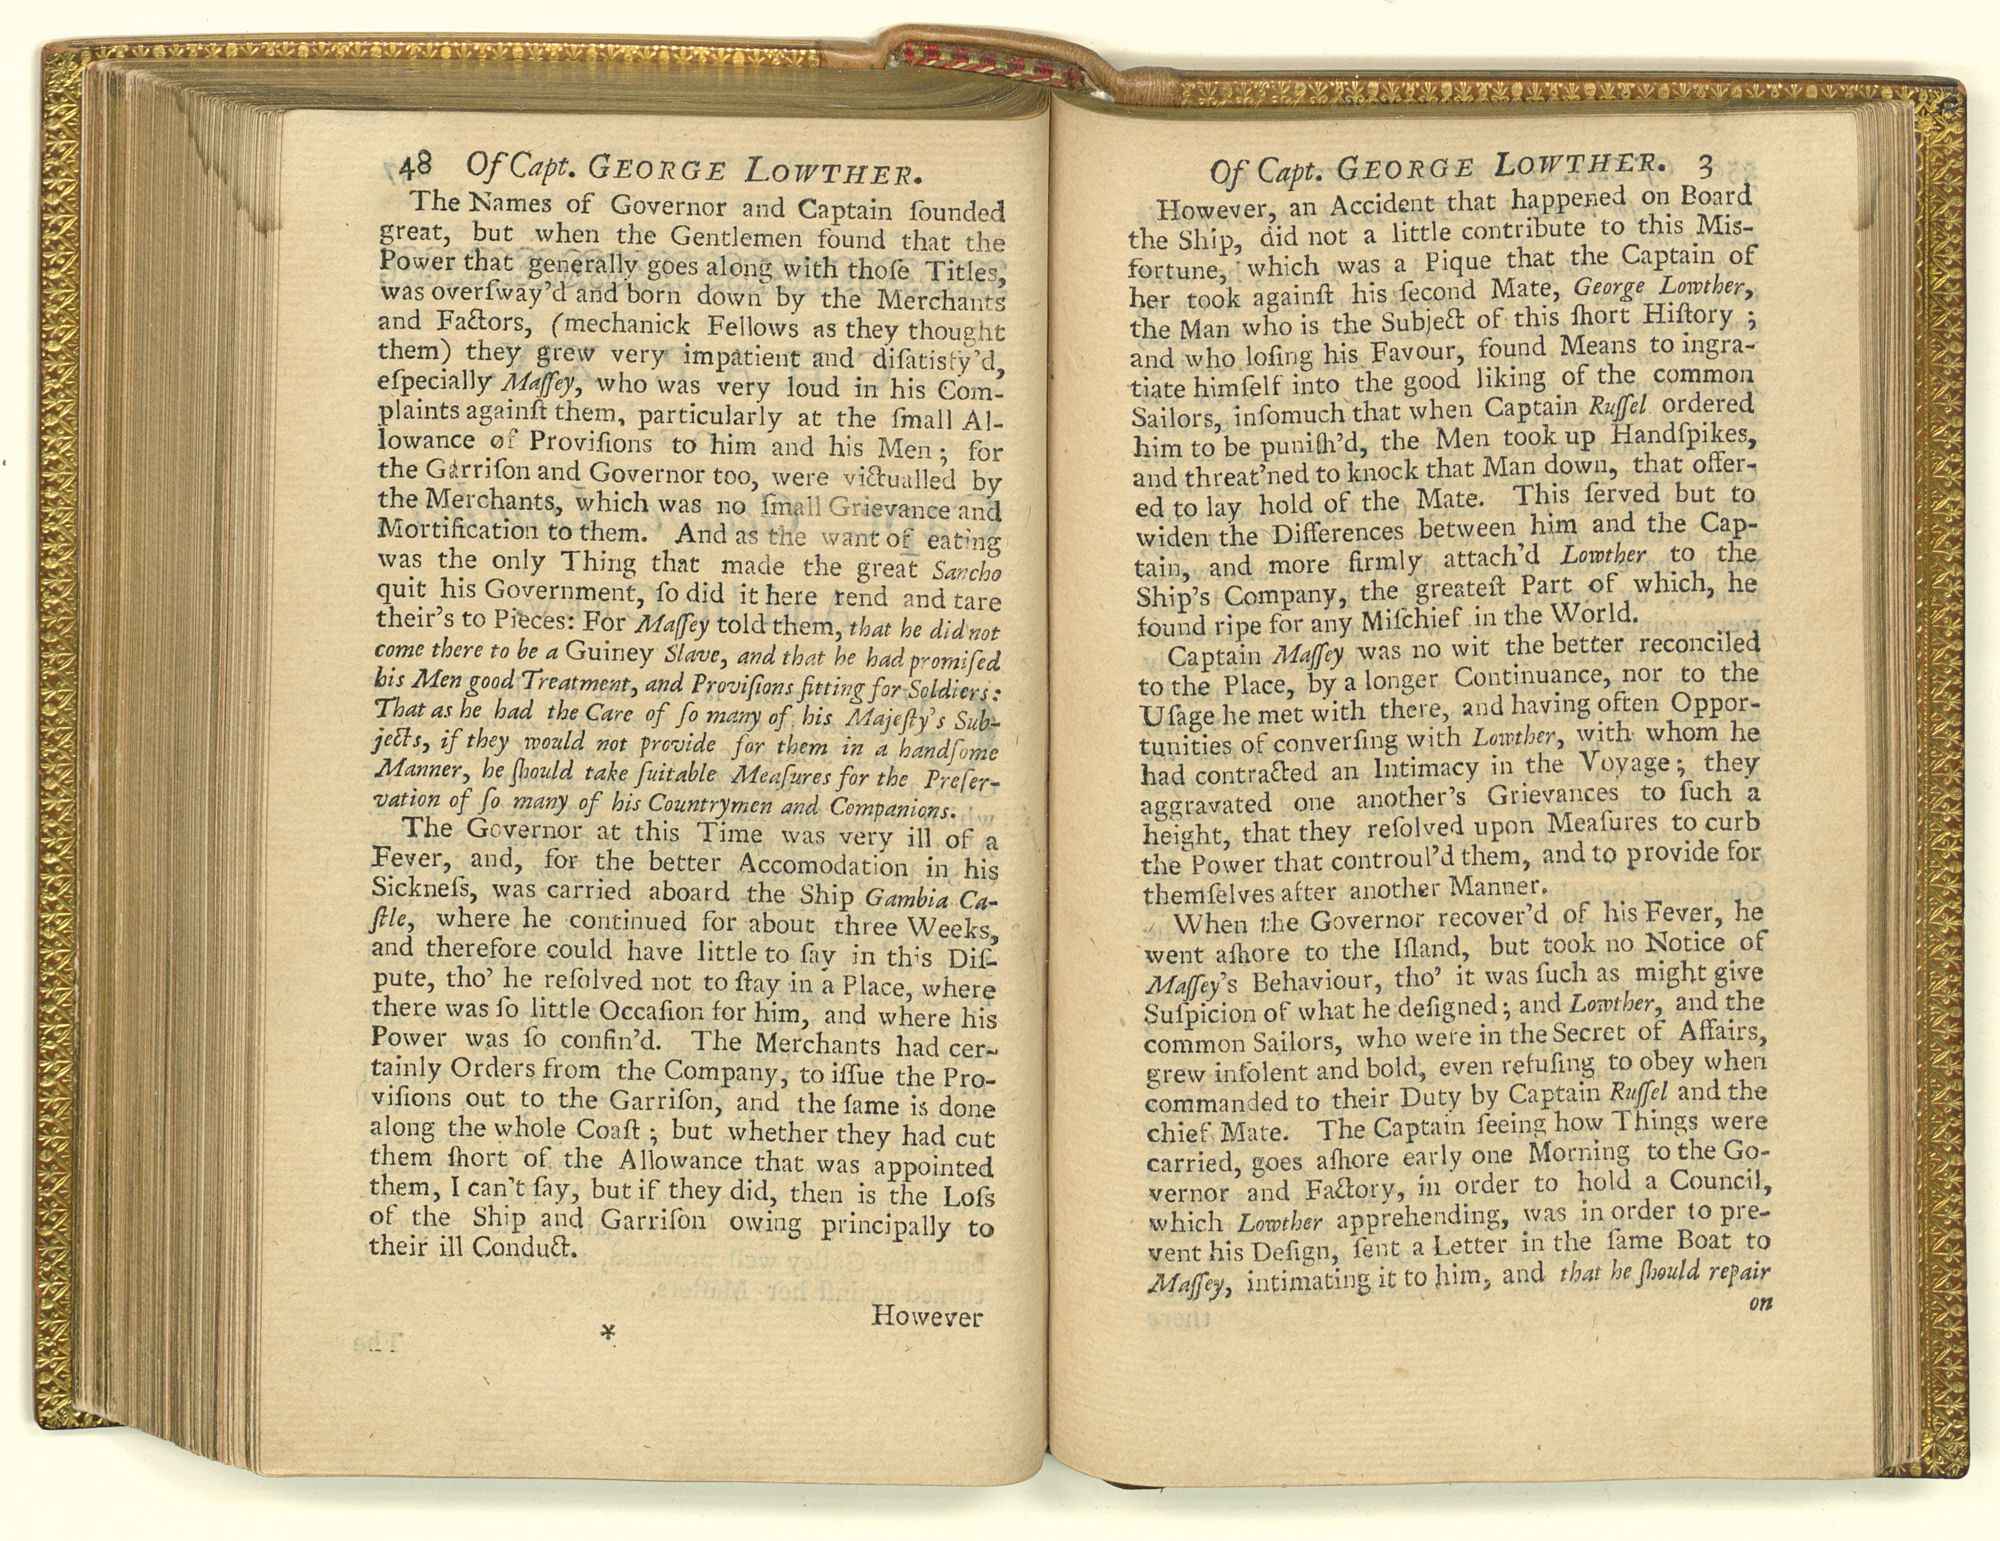 48 Of Capt. GEORGE LOWTHER.
The Names of Governor and Captain ſounded
great, but when the Gentlemen found that the
Power that generally goes along with thoſe Titles,
was overſway'd and born down by the Merchants
and Factors, (mechanick Fellows as they thought
them) they grew very impatient and diſatisfy'd,
eſpecially Maſſey, who was very loud in his Com-
plaints againſt them, particularly at the ſmall Al-
lowance of Proviſions to him and his Men; for
the Garriſon and Governor too, were victualled by
the Merchants, which was no ſmall Grievance and
Mortification to them. And as the want of eating
was the only Thing that made the great Sancho
quit his Government, ſo did it here rend and tare
their's to Pieces: For Maſſey told them, that he did not
come there to be a Guiney Slave, and that he had promiſed
his Men good Treatment, and Proviſions fitting for Soldiers:
That as he had the Care of ſo many of his Majeſty's Sub-
jects, if they would not provide for them in a handſome
Manner, he ſhould take ſuitable Meaſures for the Preſer-
vation of ſo many of his Countrymen and Companions.
The Governor at this Time was very ill of a
Fever, and, for the better Accomodation in his
Sickneſs, was carried aboard the Ship Gambia Ca-
ſtle, where he continued for about three Weeks,
and therefore could have little to ſay in this Diſ-
pute, tho' he reſolved not to ſtay in a Place, where
there was ſo little Occaſion for him, and where his
Power was ſo confin'd. The Merchants had cer-
tainly Orders from the Company, to iſſue the Pro-
viſions out to the Garriſon, and the ſame is done
along the whole Coaſt; but whether they had cut
them ſhort of the Allowance that was appointed
them, I can't ſay, but if they did, then is the Loſs
of the Ship and Garriſon owing principally to
their ill Conduct.
* However
Of Capt. GEORGE LOWTHER. 3
However, an Accident that happened on Board
the Ship, did not a little contribute to this Miſ-
fortune, which was a Pique that the Captain of
her took againſt his ſecond Mate, George Lowther,
the Man who is the Subject of this ſhort Hiſtory;
and who loſing his Favour, found Means to ingra-
tiate himſelf into the good liking of the common
Sailors, inſomuch that when Captain Ruſſel ordered
him to be puniſh'd, the Men took up Handſpikes,
and threat'ned to knock that Man down, that offer-
ed to lay hold of the Mate. This ſerved but to
widen the Differences between him and the Cap-
tain, and more firmly attach'd Lowther to the
Ship's Company, the greateſt Part of which, he
found ripe for any Miſchief in the World.
Captain Maſſey was no wit the better reconciled
to the Place, by a longer Continuance, nor to the
Uſage he met with there, and having often Oppor-
tunities of converſing with Lowther, with whom he
had contracted an Intimacy in the Voyage; they
aggravated one another's Grievances to ſuch a
height, that they reſolved upon Meaſures to curb
the Power that controul'd them, and to provide for
themſelves after another Manner.
When the Governor recover'd of his Fever, he
went aſhore to the Iſland, but took no Notice of
Maſſey's Behaviour, tho' it was ſuch as might give
Suſpicion of what he deſigned; and Lowther, and the
common Sailors, who were in the Secret of Affairs,
grew inſolent and bold, even refuſing to obey when
commanded to their Duty by Captain Ruſſel and the
chief Mate. The Captain ſeeing how Things were
carried, goes aſhore early one Morning to the Go-
vernor and Factory, in order to hold a Council,
which Lowther apprehending, was in order to pre-
vent his Deſign, ſent a Letter in the ſame Boat to
Maſſey, intimating it to him, and that he ſhould repair
on